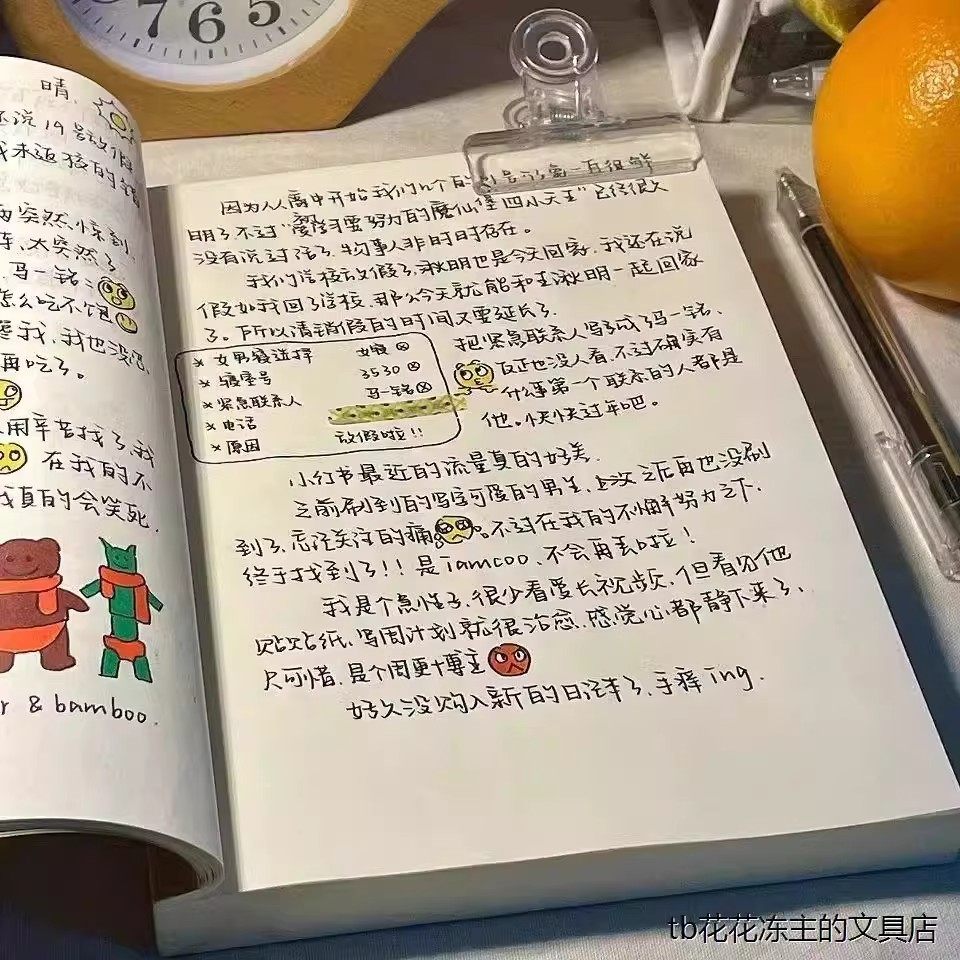 7 6 5
晴.
还说19号放假
突然,惊到
太突然了.
马一铭:
怎么吃不饱
我,我也没
再吃了。
用辛苦找了,我
在我的不
我真的会笑死.
r & bamboo.
因为从高中开始我们几个的
明了,不过“ 要努力的魔仙堡四小天王”已经很久
没有说过话了.物事人非时时存在。
我们学校放假了,湫明也是今天回家,我还在说
假如我回了学校,那么今天就能和王湫明一起回家
了。所以清销假的时间又要延长了.
* 女男寝选择 女寝
* 寝室号 3530
* 紧急联系人 马一铭
* 电话
* 原因 放假啦!!
把紧急联系人写成了马一铭、
反正也没人看,不过确实有
什么事第一个联系的人都是
他。快快过年吧。
小红书最近的流量真的好差.
之前刷到的写字可爱的男生,上次之后再也没刷
到了,忘注关注的痛 。不过在我的不懈努力之下.
终于找到了!!是iamcoo,不会再丢啦!
我是个急性子,很少看爱长视频,但看以他
贴贴纸、写周计划就很治愈,感觉心都静下来了、
只可惜,是个周更博主
好久没购入新的日记本了,手痒ing.
tb花花冻主的文具店